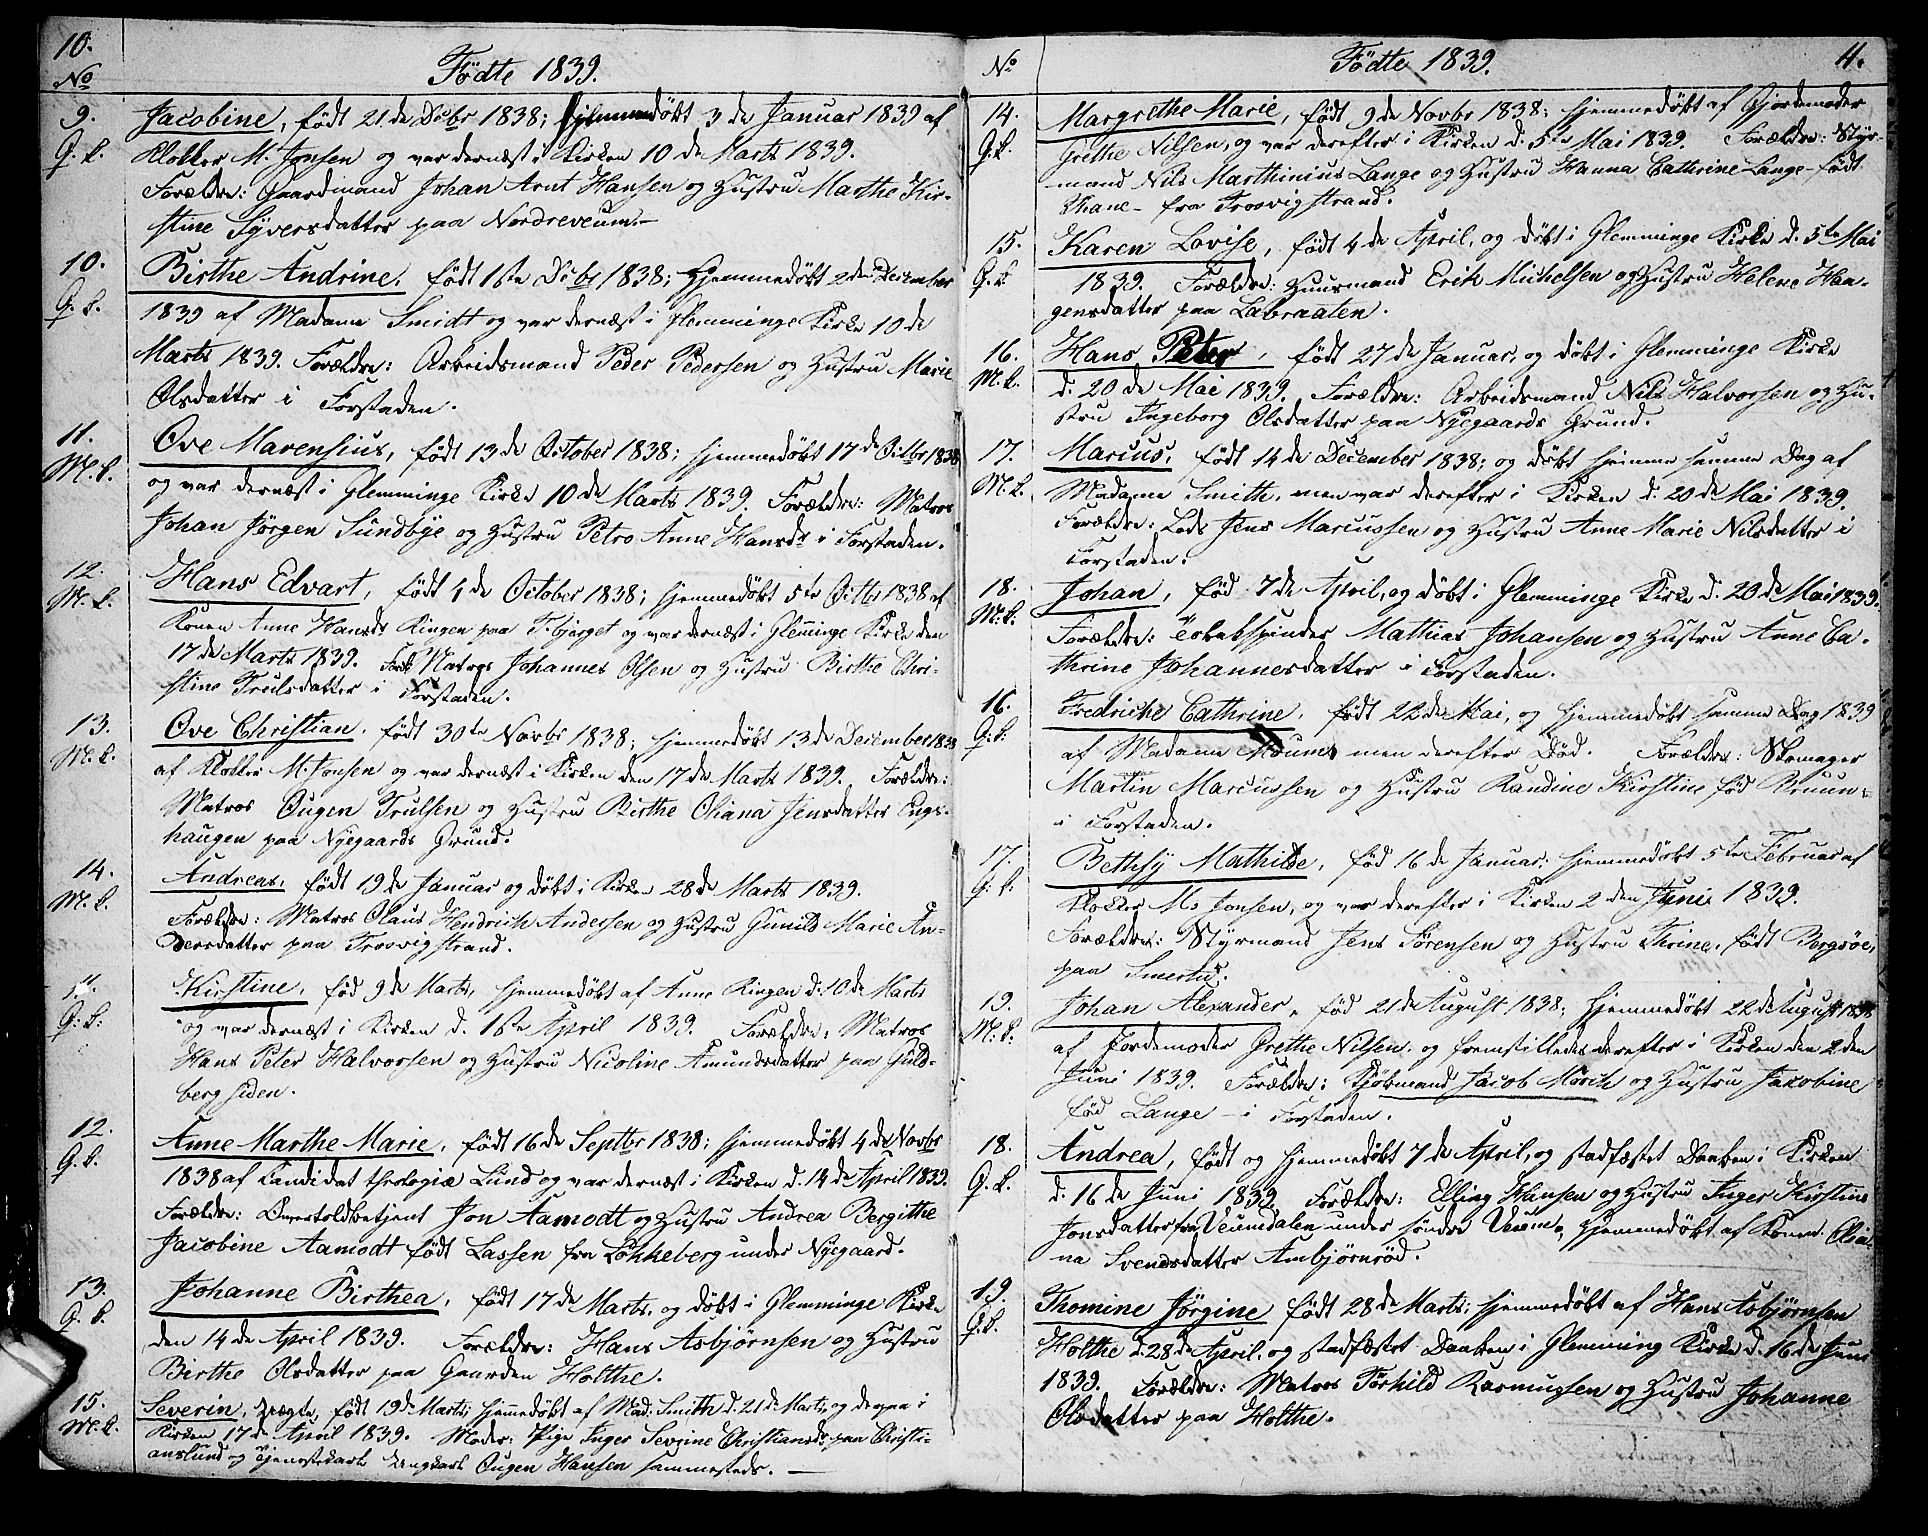 10.
No
Födte 1839.
9. Jacobine, födt 21de Decbr 1838; hjemmedøbt 3de Januar 1839 af
Q. k. Klokker M. Jonsen og var dernæst i Kirken 10de Marts 1839.
Forældre: Gaardmand Johan Arnt Hansen og Hustru Marthe Kir-
stine Syversdatter paa Nordreveum.
10. Birthe Andrine, födt 16te Decbr 1838; Hjemmedøbt 2den December
Q. k. 1839 af Madame Smidt og var dernæst i Glemminge Kirke 10de
Marts 1839. Forældre: Arbeidsmand Peder Pedersen og Hustru Marie
Olsdatter i Forstaden.
11. Ove Marensius, födt 13de October 1838; hjemmedøbt 17de Octbr 1838
M. k. og var dernæst i Glemminge Kirke 10de Marts 1839. Forældre: Matros
Johan Jörgen Sundbye og Hustru Petro Anne Hansdr i Forstaden.
12. Hans Edvart, födt 4de October 1838; hjemmedøbt 5te Octbr 1838 af
M. k. Konen Anne Hansdr Ringen paa Tbjerget og var dernæst i Glem̄inge Kirke den
17de Marts 1839. Foræld: Matros Johannes Olsen og Hustru Birthe Chri-
stine Trulsdatter i Forstaden.
13. Ove Christian, födt 30te Novbr 1838; hjemmedøbt 13de December 1838
M. k. af Klokker M. Jonsen og var dernæst i Kirken den 17de Marts 1839. Forældre:
Matros Ougen Trulsen og Hustru Birthe Oliana Jensdatter Engs-
haugen paa Nyegaards Grund.
14. Andreas, födt 19de Januar og døbt i Kirken 28de Marts 1839.
M. k. Forældre: Matros Olaus Hendrich Andersen og Hustru Gunild Marie An-
dersdatter paa Troovigstrand.
11. Kirstine, föd 9de Marts, hjemmedøbt af Anne Ringen d. 10de Marts
Q: k: og var dernæst i Kirken d. 16te April 1839. Forældre: Matros
Hans Peter Halvorsen og Hustru Nicoline Amundsdatter paa Guld-
bergsiden.
12. Anne Marthe Marie, födt 16de Septbr 1838; hjemmedøbt 4de Novbr
Q. k. 1838 af Kandidat theologiæ Lund og var dernæst i Kirken d. 14de April 1839.
Forældre: Overtoldbetjent Jon Aamodt og Hustru Andrea Bergithe
Jacobine Aamodt födt Lassen fra Lökkeberg under Nyegaard.
13. Johanne Birthea, födt 17de Marts, og døbt i Glemminge Kirke
Q. k. den 14de April 1839. Forældre: Hans Asbjörnsen og Hustru
Birthe Olsdatter paa Gaarden Holthe.
15. Severin, uægte, födt 19de Marts; hjem̄edøbt af Mad: Smith d. 21de Marts, og derpaa i
M. k. Kirken 17de April 1839. Moder: Pige Inger Sevrine Christiansdr paa Christi-
anslund og Tjenestekarl Ungkarl Ougen Hansen sammesteds.
11.
No
Födte 1839.
14. Margrethe Marie, födt 9de Novbr 1838; hjemmedøbt af Gjordemoder
Q. k. Grethe Nilsen, og var derefter i Kirken d. 5te Mai 1839. Forældre: Styr-
mand Nils Marthinius Lange og Hustru Hanna Cathrine Lange födt
Thane fra Troovigstrand.
15. Karen Lovise, födt 4de April, og døbt i Glemminge Kirke d. 5te Mai
Q. k. 1839. Forældre: Huusmand Erik Michelsen og Hustru Helene Haa-
gensdatter paa Labraaten.
16. Hans Peter, födt 27de Januar, og døbt i Glemminge Kirke
M. k. d. 20de Mai 1839. Forældre: Arbeidsmand Nils Halvorsen og Hu-
stru Ingeborg Olsdatter paa Nyegaards Grund.
17. Marius, födt 14de December 1838; og døbt hjemme samme Dag af
M. k. Madame Smith, men var derefter i Kirken d. 20de Mai 1839.
Forældre: Lods Jens Marcussen og Hustru Anne Marie Nilsdatter i
Forstaden.
18. Johan, föd 7de April, og døbt i Glemminge Kirke d. 20de Mai 1839.
M: k: Forældre: Tobakspinder Mathias Johansen og Hustru Anne Ca-
thrine Johannesdatter i Forstaden.
16. Fredriche Cathrine, födt 22de Mai, og hjemmedøbt samme Dag 1839
Q: k: af Madame Moum men derefter død. Forældre: Skomager
Martin Marcussen og Hustru Randine Kirstine föd Bruun
i Forstaden.
17. Bethsy Mathilde, föd 16de Januar; hjemmedøbt 5te Februar af
Q: k: Klokker M: Jonsen, og var derefter i Kirken 2den Juni 1839.
Forældre: Styrmand Jens Sörensen og Hustru Thrine, födt Borgsöe,
paa Smertu.
19. Johan Alexander, föd 21de August 1838; Hjemmedøbt 22de August 1838
M: k: af Jordemoder Grethe Nilsen og fremstilledes derefter i Kirken den 2den
Juni 1839. Forældre: Kjöbmand Jacob Mörch og Hustru Jakobine
föd Lange i Forstaden.
18. Andrea, födt og hjemmedøbt 7de April, og stadfæstet Daaben i Kirken
Q. k. d. 16de Juni 1839 Forældre: Elling Hansen og Hustru Inger Kirstine
Jonsdatter fra Veumdalen under söndre Veum, Hjemmedøbt af Konen Olia-
na Svendsdatter Ambjörnröd.
19. Thomine Jörgine födt 28de Marts; hjemmedøbt af Hans Asbjörnsen
Q. k. Holthe d. 28de April, og stadfæstet Daaben i Glemming Kirke d. 16de Juni
1839. Forældre: Matros Torkild Rasmussen og Hustru Johanne
Olsdatter paa Holthe.